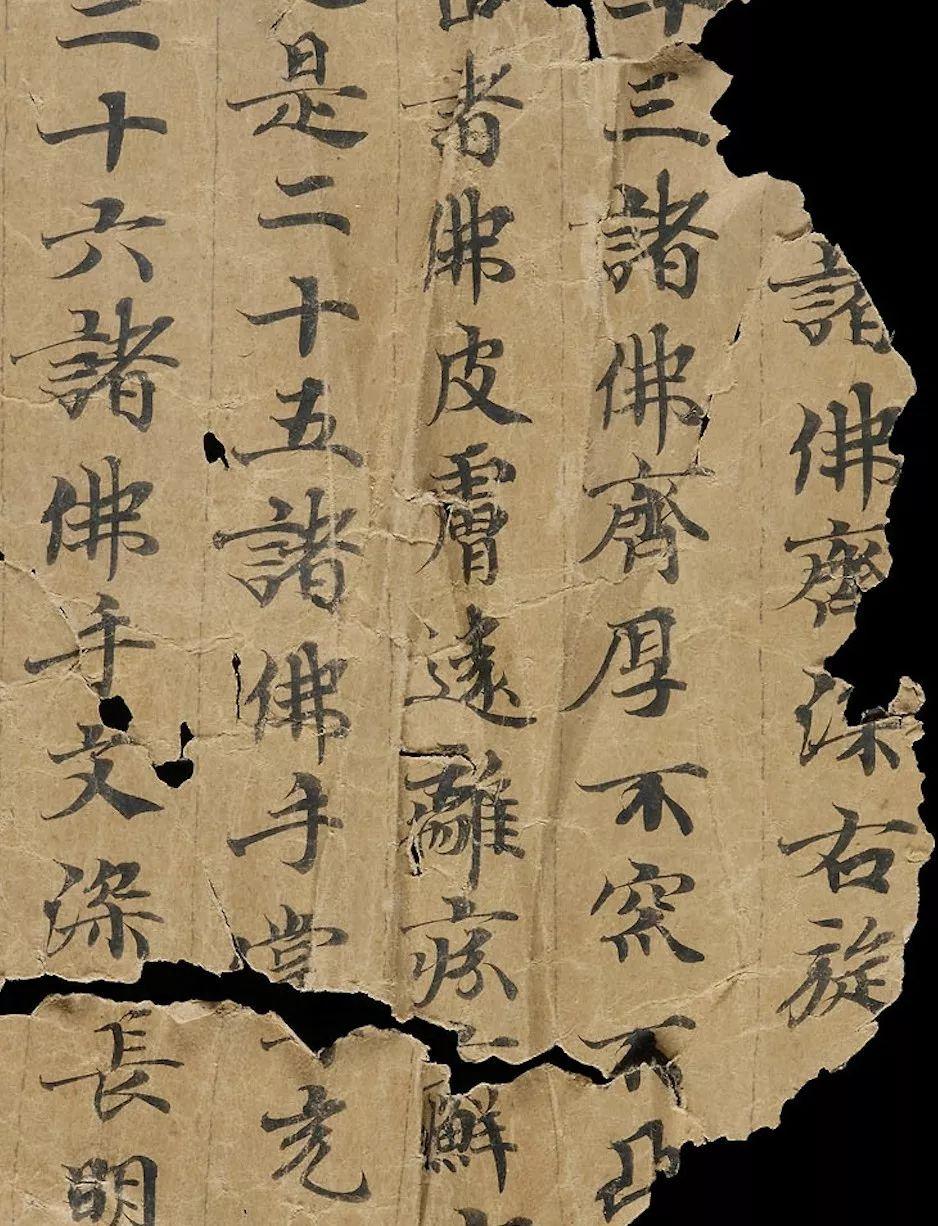 諸佛齊深右旋
十三諸佛齊厚不窊不凸
諸佛皮膚遠離疥癬
是二十五諸佛手掌充
二十六諸佛手文深長明